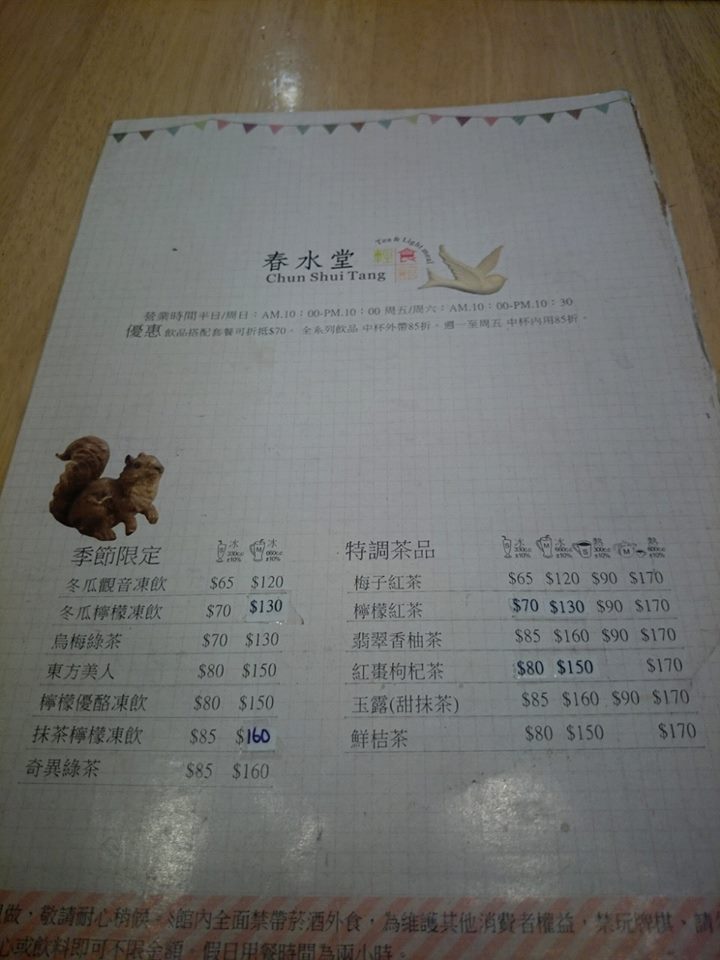 春水堂
Chun Shui Tang
Tea & Light meal
輕食
營業時間平日/周日：AM.10：00-PM.10：00 周五/周六：AM.10：00-PM.10：30
優惠 飲品搭配套餐可折抵$70。 全系列飲品 中杯外帶85折。週一至周五 中杯內用85折。
季節限定 S 冰 330c.c ±10% M 冰 660c.c ±10%
冬瓜觀音凍飲 $65 $120
冬瓜檸檬凍飲 $70 $130
烏梅綠茶 $70 $130
東方美人 $80 $150
檸檬優酪凍飲 $80 $150
抹茶檸檬凍飲 $85 $160
奇異綠茶 $85 $160
特調茶品 S 冰 330c.c ±10% M 冰 660c.c ±10% S 熱 300c.c ±10% M 熱 600c.c ±10%
梅子紅茶 $65 $120 $90 $170
檸檬紅茶 $70 $130 $90 $170
翡翠香柚茶 $85 $160 $90 $170
紅棗枸杞茶 $80 $150 $170
玉露(甜抹茶) $85 $160 $90 $170
鮮桔茶 $80 $150 $170
做，敬請耐心稍候。※館內全面禁帶菸酒外食，為維護其他消費者權益，禁玩牌棋、請勿
心或飲料即可不限金額。假日用餐時間為兩小時。